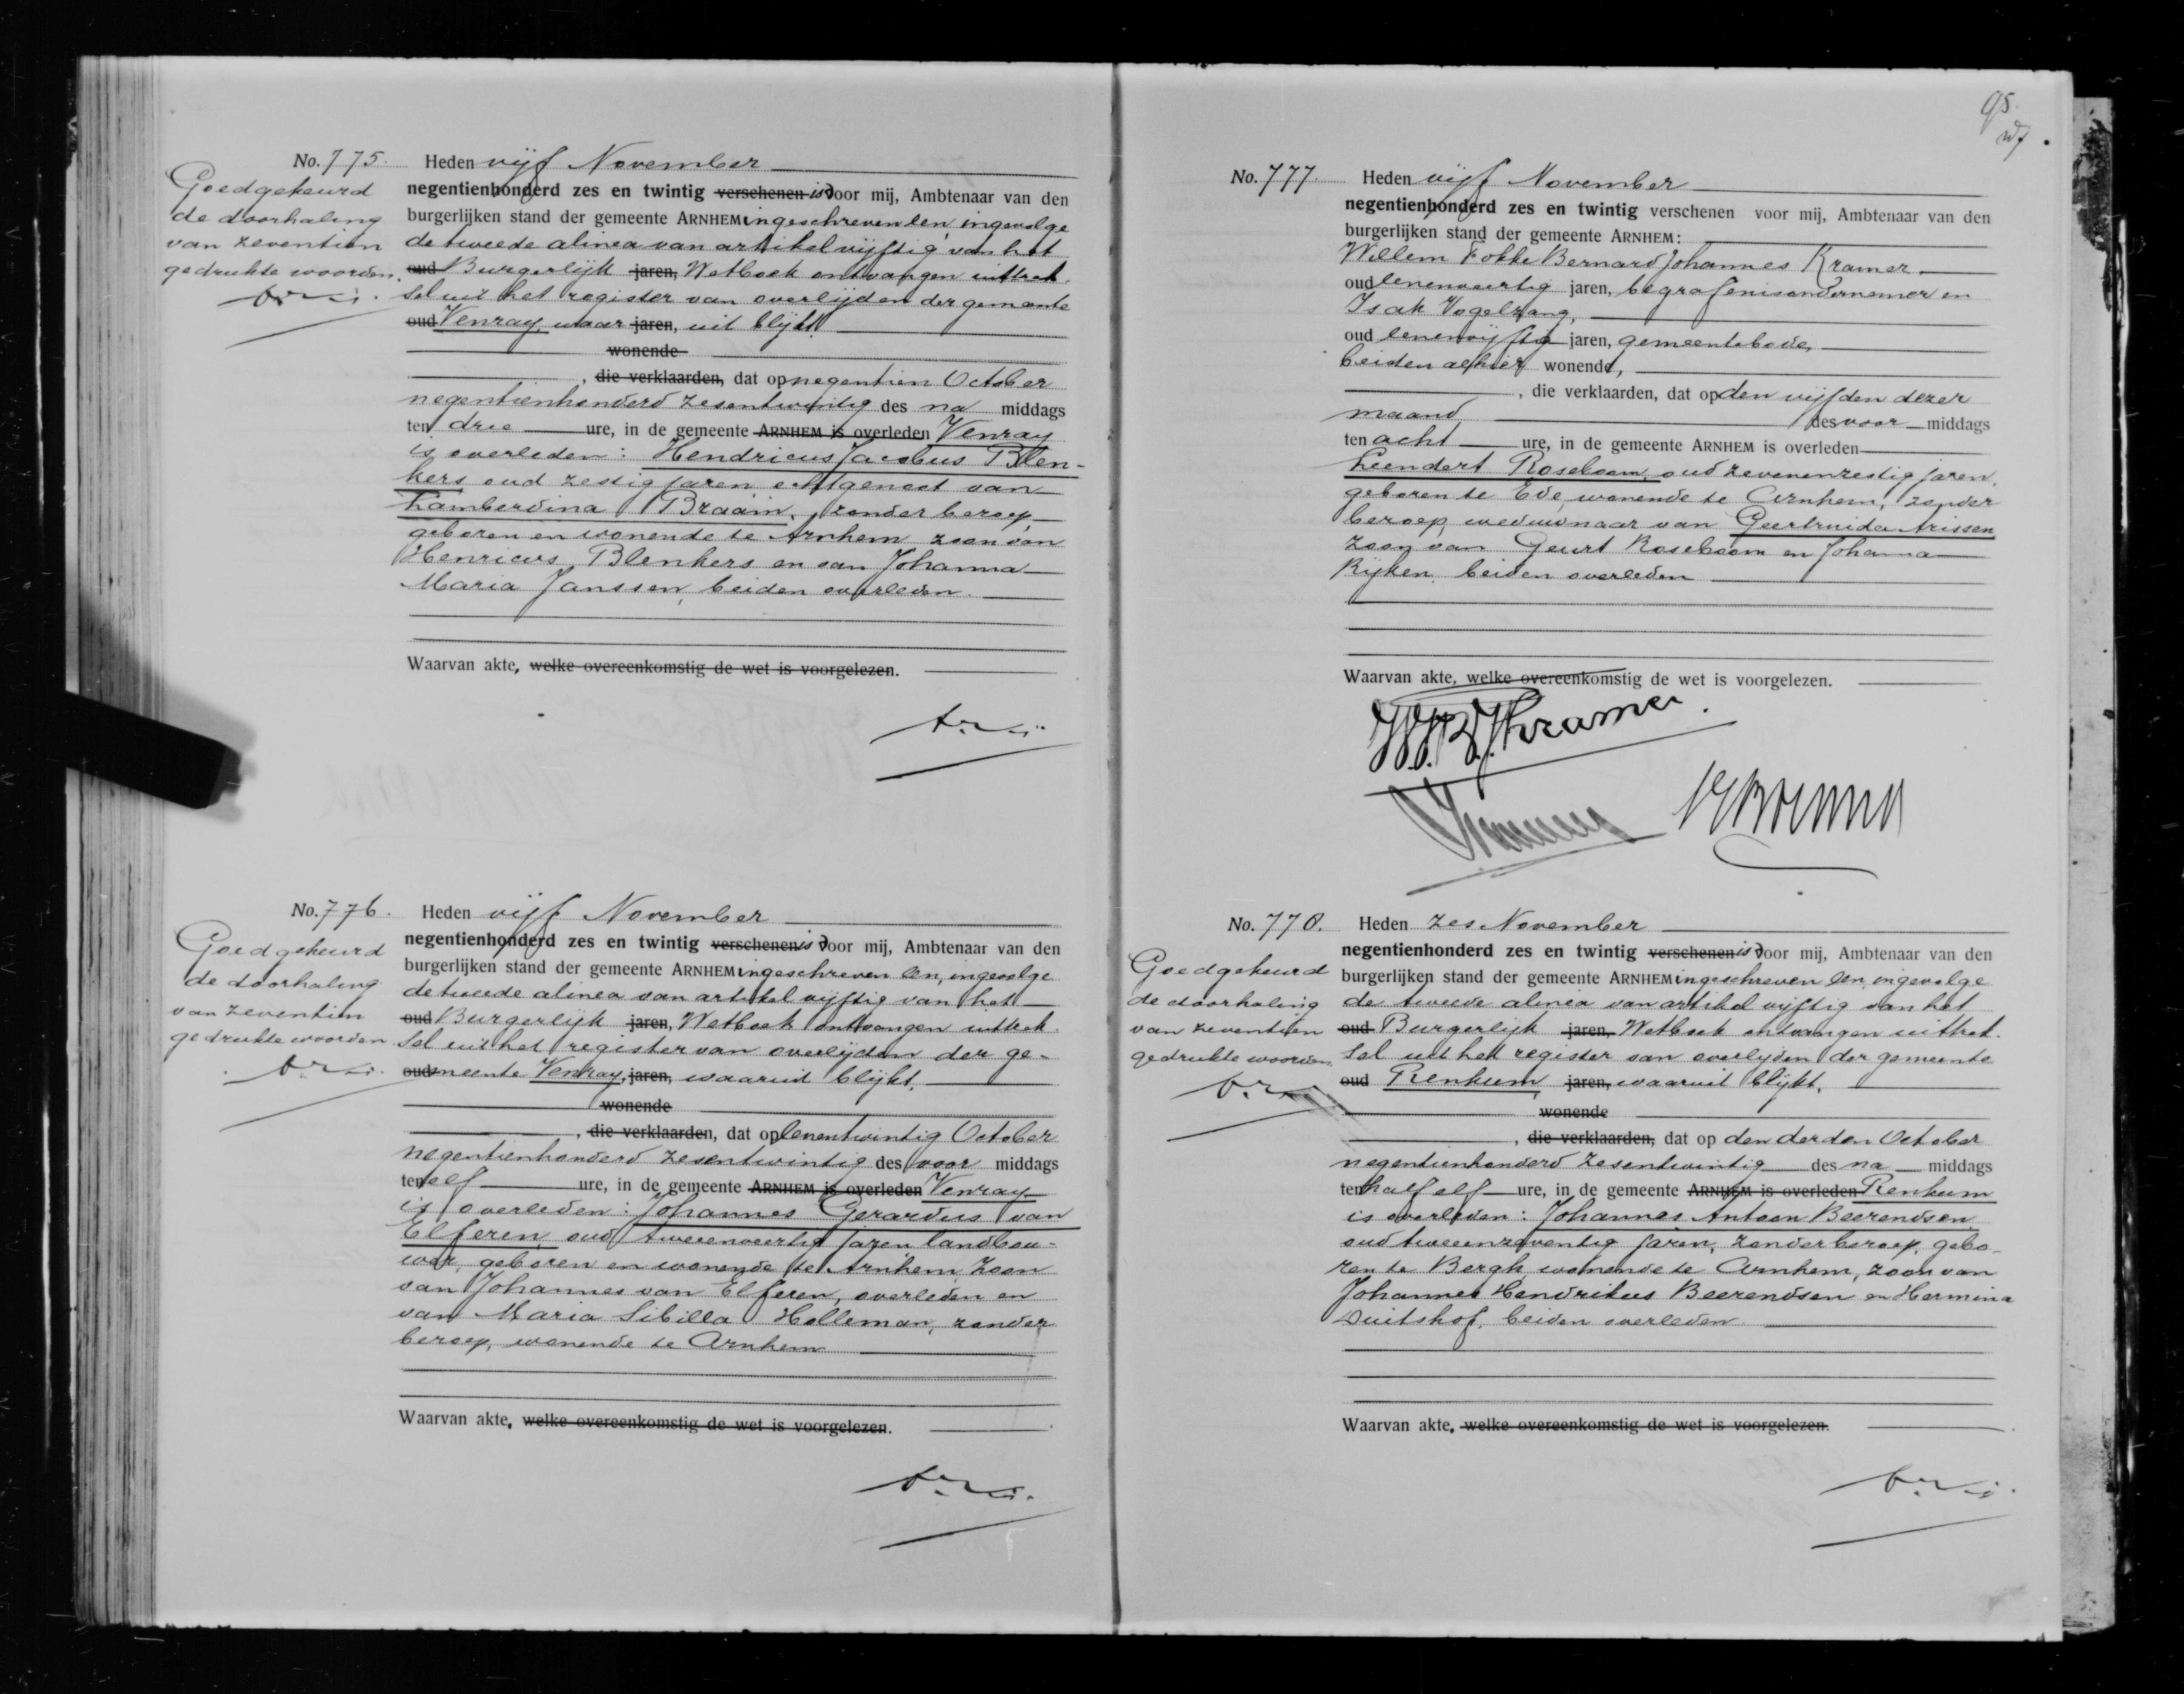 No. 775. Heden vijf November
negentienhonderd zes en twintig verschenen is door mij, Ambtenaar van den
burgerlijken stand der gemeente ARNHEM ingeschreven een, ingevolge
de tweede alinea van artikel vijftig van het
oud Burgerlijk jaren, Wetboek ontvangen uittrek-
sel uit het register van overlijden der gemeente
oud Venray, waar jaren, uit blijkt
wonende
, die verklaarden, dat op negentien October
negentienhonderd zesentwintig des na middags
ten drie ure, in de gemeente ARNHEM is overleden Venray
is overleden: Hendricus Jacobus Blen-
kers oud zestig jaren echtgenoot van
Lamberdina Braam, zonder beroep,
geboren en wonende te Arnhem zoon van
Henricus Blenkers en van Johanna
Maria Janssen, beiden overleden.
Waarvan akte, welke overeenkomstig de wet is voorgelezen.
Goedgekeurd
de doorhaling
van zeventien
gedrukte woorden.
No. 776. Heden vijf November
negentienhonderd zes en twintig verschenen is door mij, Ambtenaar van den
burgerlijken stand der gemeente ARNHEM ingeschreven een, ingevolge
de tweede alinea van artikel vijftig van het
oud Burgerlijk jaren, Wetboek ontvangen uittrek-
sel uit het register van overlijden der ge-
oud meente Venray, jaren, waaruit blijkt,
wonende
, die verklaarden, dat op eenentwintig October
negentienhonderd zesentwintig des voor middags
ten elf ure, in de gemeente ARNHEM is overleden Venray
is overleden: Johannes Gerardus van
Elferen, oud tweeenveertig jaren landbou-
wer, geboren en wonende te Arnhem, zoon
van Johannes van Elferen, overleden en
van Maria Sibilla Holleman, zonder
beroep, wonende te Arnhem
Waarvan akte, welke overeenkomstig de wet is voorgelezen.
Goedgekeurd
de doorhaling
van zeventien
gedrukte woorden
95.
No. 777. Heden vijf November
negentienhonderd zes en twintig verschenen voor mij, Ambtenaar van den
burgerlijken stand der gemeente ARNHEM:
Willem Fokke Bernard Johannes Kramer,
oud eenenveertig jaren, begrafenisondernemer en
Isak Vogelzang,
oud eenenvijftig jaren, gemeentebode,
beiden alhier wonend,
, die verklaarden, dat op den vijfden dezer
maand des voor middags
ten acht ure, in de gemeente ARNHEM is overleden
Leendert Roseboom, oud zevenenzestig jaren,
geboren te Ede, wonende te Arnhem, zonder
beroep, weduwnaar van Geertruida Arissen
zoon van Geurt Roseboom en Johanna
Rijken, beiden overleden
Waarvan akte, welke overeenkomstig de wet is voorgelezen.
WFBJKramer.
No. 778. Heden zes November
negentienhonderd zes en twintig verschenen is door mij, Ambtenaar van den
burgerlijken stand der gemeente ARNHEM ingeschreven een, ingevolge
de tweede alinea van artikel vijftig van het
oud Burgerlijk jaren, Wetboek ontvangen uittrek-
sel uit het register van overlijden der gemeente
oud Renkum, jaren, waaruit blijkt,
wonende
, die verklaarden, dat op den derden October
negentienhonderd zesentwintig des na middags
ten half elf ure, in de gemeente ARNHEM is overleden Renkum
is overleden: Johannes Antoon Beerendsen,
oud tweeenzeventig jaren, zonder beroep, gebo-
ren te Bergh, wonende te Arnhem, zoon van
Johannes Hendrikus Beerendsen en Hermina
Duitshof, beiden overleden
Waarvan akte, welke overeenkomstig de wet is voorgelezen.
Goedgekeurd
de doorhaling
van zeventien
gedrukte woorden